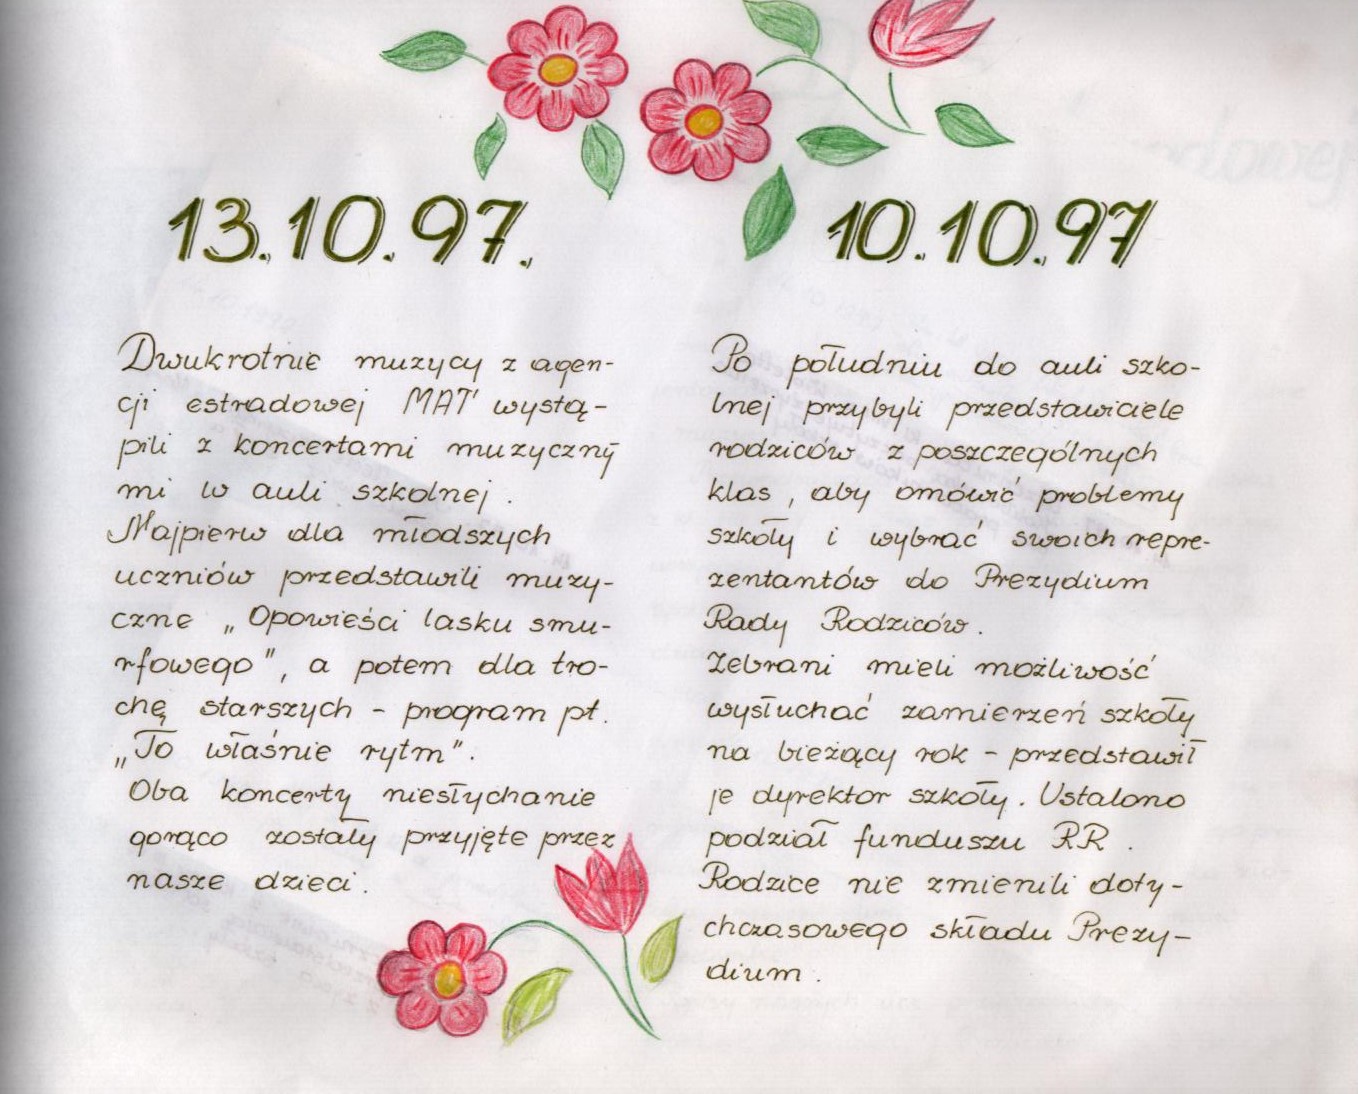 13.10.97.
Dwukrotnie muzycy z agen-
cji estradowej "MAT" wystą-
pili z koncertami muzyczny
mi w auli szkolnej.
Najpierw dla młodszych
uczniów przedstawili muzy-
czne „Opowieści lasku smu-
rfowego", a potem dla tro-
chę starszych - program pt.
„To właśnie rytm".
Oba koncerty niesłychanie
gorąco zostały przyjęte przez
nasze dzieci.
10.10.97
Po południu do auli szko-
lnej przybyli przedstawiciele
rodziców z poszczególnych
klas, aby omówić problemy
szkoły i wybrać swoich repre-
zentantów do Prezydium
Rady Rodziców.
Zebrani mieli możliwość
wysłuchać zamierzeń szkoły
na bieżący rok - przedstawił
je dyrektor szkoły. Ustalono
podział funduszu RR.
Rodzice nie zmienili doty-
chczasowego składu Prezy-
dium.